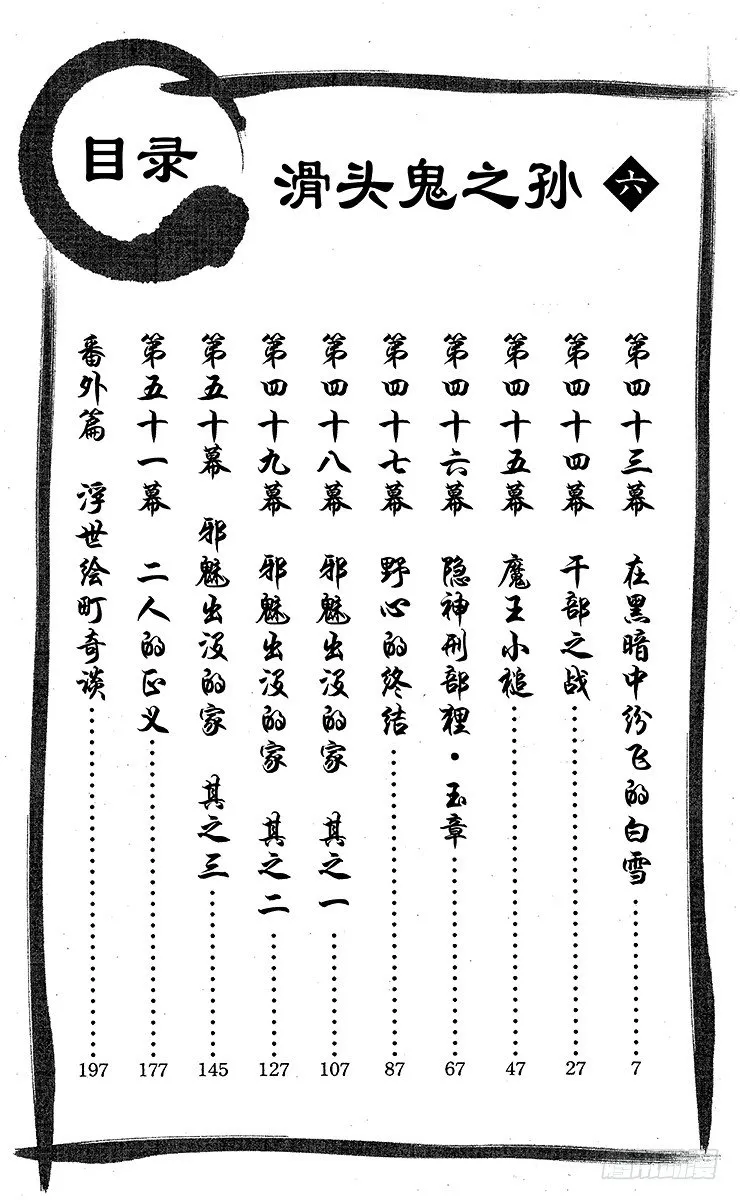 目录
滑头鬼之孙 六
第四十三幕 在黑暗中纷飞的白雪 7
第四十四幕 干部之战 27
第四十五幕 魔王小槌 47
第四十六幕 隐神刑部狸·玉章 67
第四十七幕 野心的终结 87
第四十八幕 邪魅出没的家 其之一 107
第四十九幕 邪魅出没的家 其之二 127
第五十幕 邪魅出没的家 其之三 145
第五十一幕 二人的正义 177
番外篇 浮世绘町奇谈 197